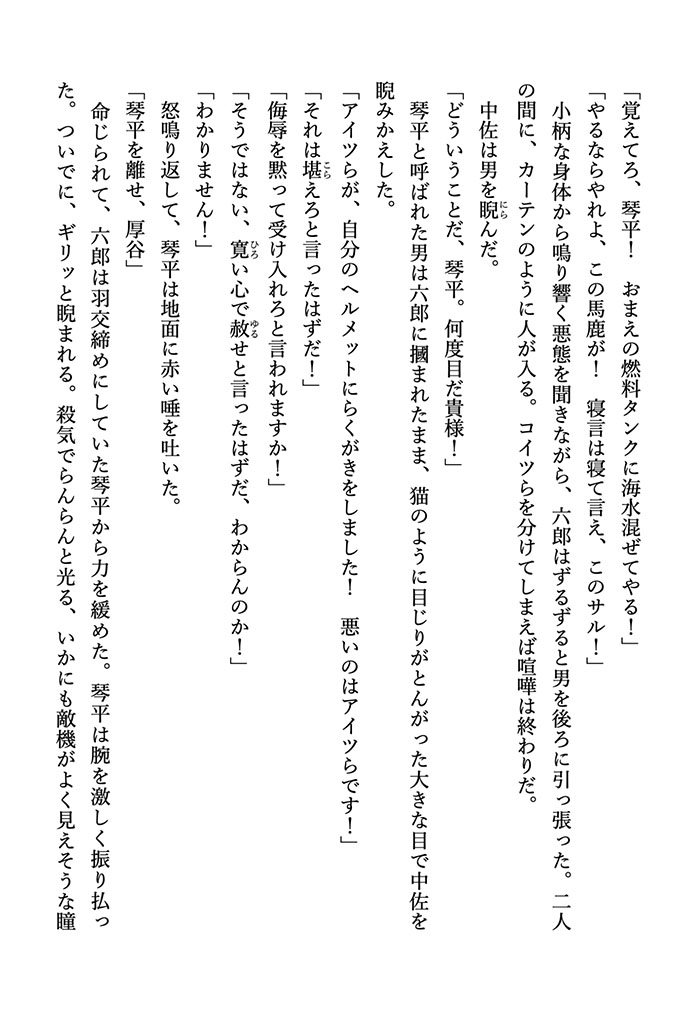 「覚えてろ、琴平！　おまえの燃料タンクに海水混ぜてやる！」
「やるならやれよ、この馬鹿が！　寝言は寝て言え、このサル！」
　小柄な身体から鳴り響く悪態を聞きながら、六郎はずるずると男を後ろに引っ張った。二人
の間に、カーテンのように人が入る。コイツらを分けてしまえば喧嘩は終わりだ。
　中佐は男を睨にらんだ。
「どういうことだ、琴平。何度目だ貴様！」
　琴平と呼ばれた男は六郎に摑まれたまま、猫のように目じりがとんがった大きな目で中佐を
睨みかえした。
「アイツらが、自分のヘルメットにらくがきをしました！　悪いのはアイツらです！」
「それは堪こらえろと言ったはずだ！」
「侮辱を黙って受け入れろと言われますか！」
「そうではない、寛ひろい心で赦ゆるせと言ったはずだ、わからんのか！」
「わかりません！」
　怒鳴り返して、琴平は地面に赤い唾を吐いた。
「琴平を離せ、厚谷」
　命じられて、六郎は羽交締めにしていた琴平から力を緩めた。琴平は腕を激しく振り払っ
た。ついでに、ギリッと睨まれる。殺気でらんらんと光る、いかにも敵機がよく見えそうな瞳